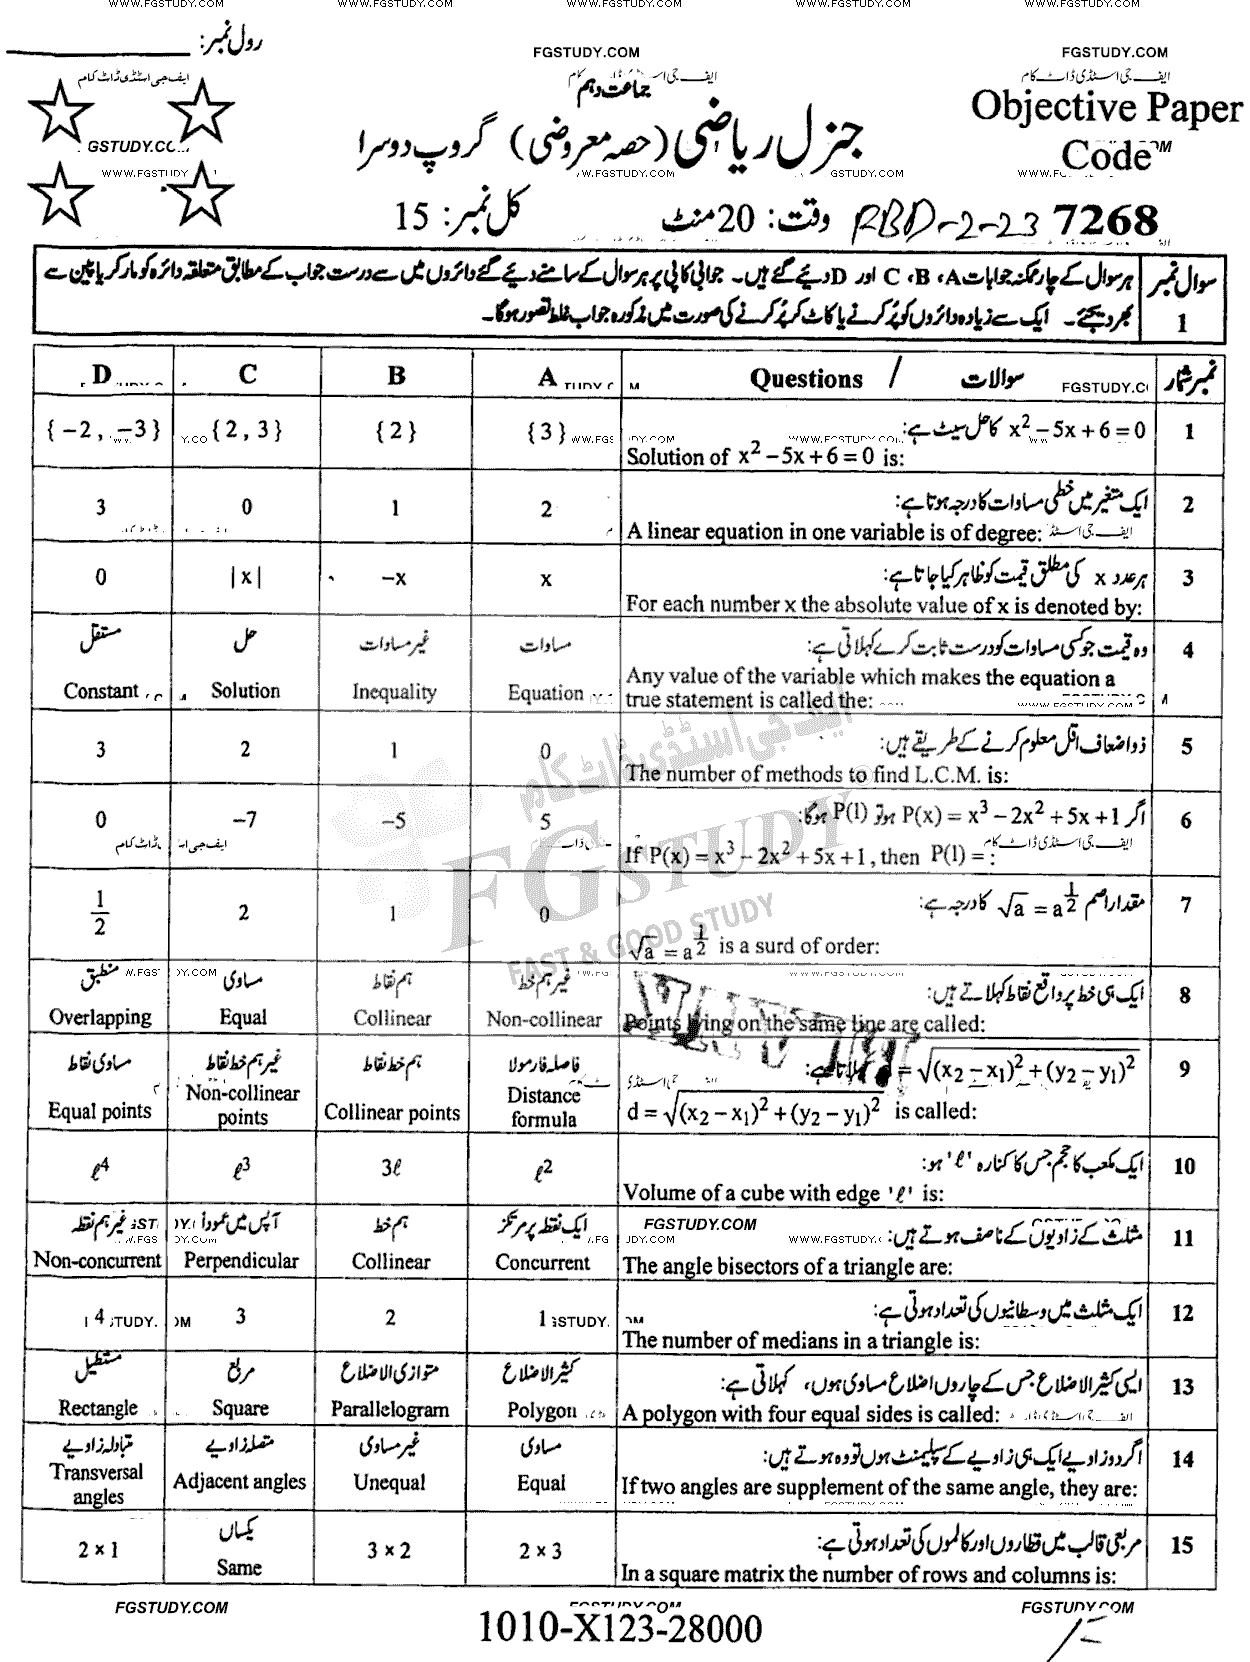 WWW.FGSTUDY.COM WWW.FGSTUDY.COM WWW.FGSTUDY.COM WWW.FGSTUDY.COM WWW.FGSTUDY.COM
رول نمبر:
FGSTUDY.COM FGSTUDY.COM
ایف جی اسٹڈی ڈاٹ کام
جماعت دہم
Objective Paper
Code
جنرل ریاضی (حصہ معروضی) گروپ دوسرا
7268 RBD-2-23 وقت: 20 منٹ کل نمبر: 15
سوال نمبر 1
ہر سوال کے چار ممکنہ جوابات A، B، C اور D دیئے گئے ہیں۔ جوابی کاپی پر ہر سوال کے سامنے دیئے گئے دائروں میں سے درست جواب کے مطابق متعلقہ دائرہ کو مارکر یا پین سے
بھر دیجئے۔ ایک سے زیادہ دائروں کو پُر کرنے یا کاٹ کر پُر کرنے کی صورت میں مذکورہ جواب غلط تصور ہوگا۔
D C B A Questions / سوالات نمبر شمار
1 x² − 5x + 6 = 0 کا حل سیٹ ہے:
Solution of x² − 5x + 6 = 0 is:
{−2, −3} {2, 3} {2} {3}
2 ایک متغیر میں خطی مساوات کا درجہ ہوتا ہے:
A linear equation in one variable is of degree:
3 0 1 2
3 ہر عدد x کی مطلق قیمت کو ظاہر کیا جاتا ہے:
For each number x the absolute value of x is denoted by:
0 |x| −x x
4 وہ قیمت جو کسی مساوات کو درست ثابت کرے کہلاتی ہے:
Any value of the variable which makes the equation a
true statement is called the:
مستقل حل غیر مساوات مساوات
Constant Solution Inequality Equation
5 ذواضعاف اقل معلوم کرنے کے طریقے ہیں:
The number of methods to find L.C.M. is:
3 2 1 0
6 اگر P(x) = x³ − 2x² + 5x + 1 ہو تو P(1) ہوگا:
If P(x) = x³ − 2x² + 5x + 1, then P(1) = :
0 −7 −5 5
7 مقدار اصم √a = a^(1/2) کا درجہ ہے:
√a = a^(1/2) is a surd of order:
1/2 2 1 0
8 ایک ہی خط پر واقع نقاط کہلاتے ہیں:
Points lying on the same line are called:
منطبق مساوی ہم نقاط غیر ہم خط
Overlapping Equal Collinear Non-collinear
9 = √((x₂ − x₁)² + (y₂ − y₁)²) کہلاتا ہے:
d = √((x₂ − x₁)² + (y₂ − y₁)²) is called:
مساوی نقاط غیر ہم خط نقاط ہم خط نقاط فاصلہ فارمولا
Equal points Non-collinear points Collinear points Distance formula
10 ایک مکعب کا حجم جس کا کنارہ 'ℓ' ہو:
Volume of a cube with edge 'ℓ' is:
ℓ⁴ ℓ³ 3ℓ ℓ²
11 مثلث کے زاویوں کے ناصف ہوتے ہیں:
The angle bisectors of a triangle are:
غیر ہم نقطہ آپس میں عموداً ہم خط ایک نقطہ پر مرتکز
Non-concurrent Perpendicular Collinear Concurrent
12 ایک مثلث میں وسطانیوں کی تعداد ہوتی ہے:
The number of medians in a triangle is:
4 3 2 1
13 ایسی کثیر الاضلاع جس کے چاروں اضلاع مساوی ہوں، کہلاتی ہے:
A polygon with four equal sides is called:
مستطیل مربع متوازی الاضلاع کثیر الاضلاع
Rectangle Square Parallelogram Polygon
14 اگر دو زاویے ایک ہی زاویے کے سپلیمنٹ ہوں تو وہ ہوتے ہیں:
If two angles are supplement of the same angle, they are:
متبادلہ زاویے متصلہ زاویے غیر مساوی مساوی
Transversal angles Adjacent angles Unequal Equal
15 مربعی قالب میں قطاروں اور کالموں کی تعداد ہوتی ہے:
In a square matrix the number of rows and columns is:
2 × 1 یکساں Same 3 × 2 2 × 3
FGSTUDY
FAST & GOOD STUDY
ایف جی اسٹڈی ڈاٹ کام
FGSTUDY.COM FGSTUDY.COM FGSTUDY.COM
1010-X123-28000